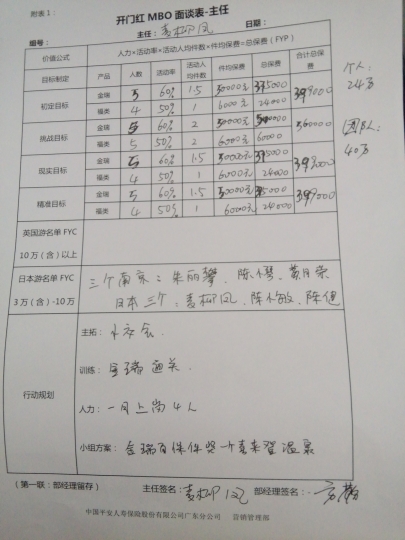 附表1：
开门红 MBO 面谈表-主任
编号： 主任：麦柳凤 日期：
价值公式 人力×活动率×活动人均件数×件均保费=总保费（FYP）
目标制定 产品 人数 活动率 活动人均件数 件均保费 总保费 合计总保费
初定目标 金瑞 5 60% 1.5 50000元 375000 399000
福类 4 50% 1 6000元 24000
挑战目标 金瑞 5 60% 2 50000元 500000 560000
福类 5 50% 2 6000元 60000
现实目标 金瑞 5 60% 1.5 50000元 375000 399000
福类 4 50% 1 6000元 24000
精准目标 金瑞 5 60% 1.5 50000元 375000 399000
福类 4 50% 1 6000元 24000
个人：
24万
团队：
40万
英国游名单 FYC
10 万（含）以上
日本游名单 FYC
3 万（含）-10 万
三个南京：朱丽攀、陈
日本三个：麦柳凤、陈小敏、陈
行动规划
主拓：
训练：金瑞通关
人力：一月上岗4人
小组方案：金瑞百件件奖一个喜来登温泉
（第一联：部经理留存） 主任签名：麦柳凤 部经理签名：
中国平安人寿保险股份有限公司广东分公司 营销管理部